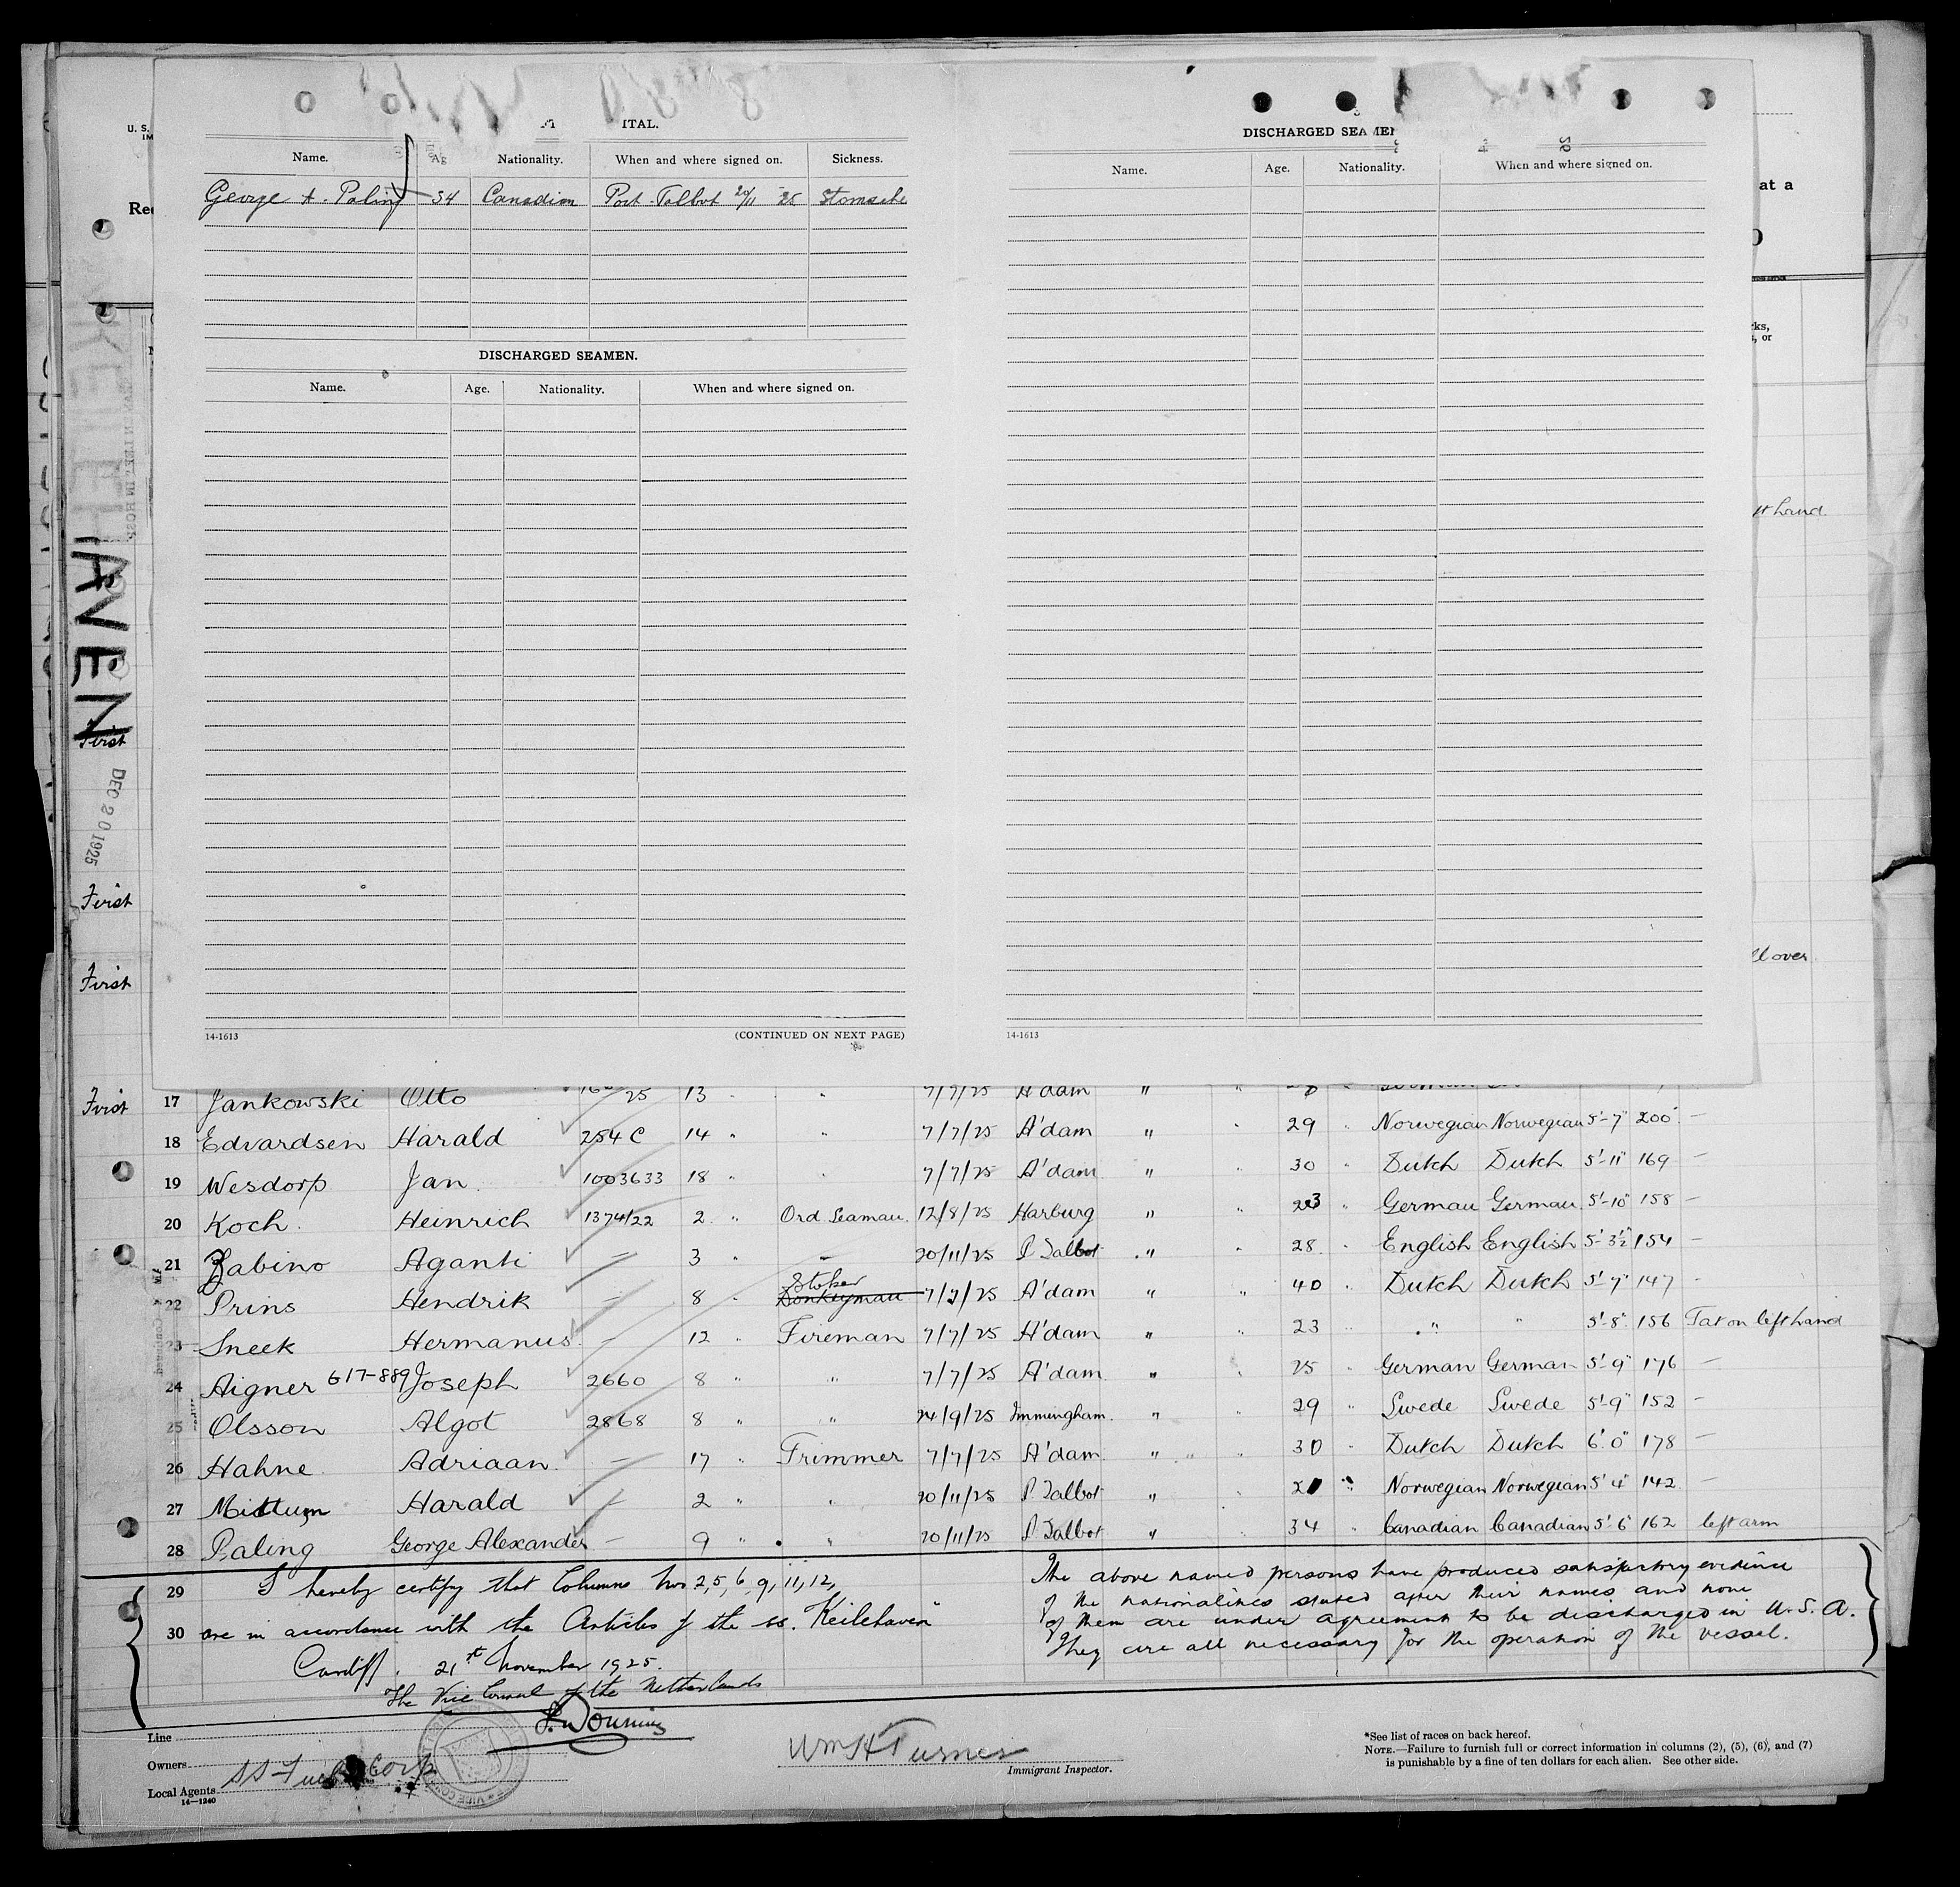 ITAL.
Name. Nationality. When and where signed on. Sickness.
George A. Paling 34 Canadian Port Talbot 20/11 25 Stomache
DISCHARGED SEAMEN.
Name. Age. Nationality. When and where signed on.
14-1613 (CONTINUED ON NEXT PAGE)
DISCHARGED SEAMEN
Name. Age. Nationality. When and where signed on.
14-1613
U. S.
at a
ks,
, or
HAVEN
First
DEC 20 1925
First
First
ll over
First 17 Jankowski Otto 25 13 " " 7/7/25 A'dam " "
18 Edvardsen Harald 254 C 14 " " 7/7/25 A'dam " " 29 " Norwegian Norwegian 5'-7" 200 —
19 Wesdorp Jan 1003633 18 " " 7/7/25 A'dam " " 30 " Dutch Dutch 5'-11" 169 —
20 Koch Heinrich 1374/22 2 " Ord. Seaman 12/8/25 Harburg " " 23 " German German 5'-10" 158 —
21 Zabino Aganti — 3 " — 20/11/25 P Talbot " " 28 " English English 5'-3½" 154 —
22 Prins Hendrik — 8 " Stoker Donkeyman 7/7/25 A'dam " " 40 " Dutch Dutch 5'-7" 147 -
23 Sneek Hermanus — 12 " Fireman 7/7/25 A'dam " " 23 " " " 5'-8" 156 Tat on left hand
24 Aigner 617-889 Joseph 2660 8 " " 7/7/25 A'dam " " 25 " German German 5'-9" 176 —
25 Olsson Algot 2868 8 " " 24/9/25 Immingham " " 29 " Swede Swede 5'-9" 152 —
26 Hahne Adriaan — 17 " Trimmer 7/7/25 A'dam " " " 30 " Dutch Dutch 6'.0" 178 —
27 Harald — 2 " " 20/11/25 P Talbot " 21 " Norwegian Norwegian 5'4" 142 —
28 Paling George Alexander — 9 " " 20/11/25 P Talbot " " 34 " Canadian Canadian 5'-6" 162 left arm
29 I hereby certify that Columns Nos 2, 5, 6, 9, 11, 12,
30 are in accordance with the Articles of the ss. "Keilehaven"
Cardiff, 21st November 1925.
The Vice Consul of the Netherlands
The above named persons have produced satisfactory evidence
of the nationalities stated after their names and none
of them are under agreement to be discharged in U. S. A.
They are all necessary for the operation of the vessel.
Line
Owners
Local Agents
14—1240
Wm H Turner
Immigrant Inspector.
*See list of races on back hereof.
NOTE.—Failure to furnish full or correct information in columns (2), (5), (6), and (7)
is punishable by a fine of ten dollars for each alien. See other side.